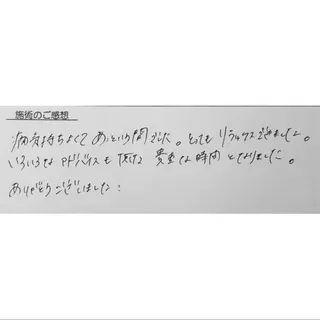 施術のご感想
痛気持ちよくて あっという間でした。とっても リラックスできました。
いろいろな アドバイスも 頂け 貴重な時間 となりました。
ありがとうございました!